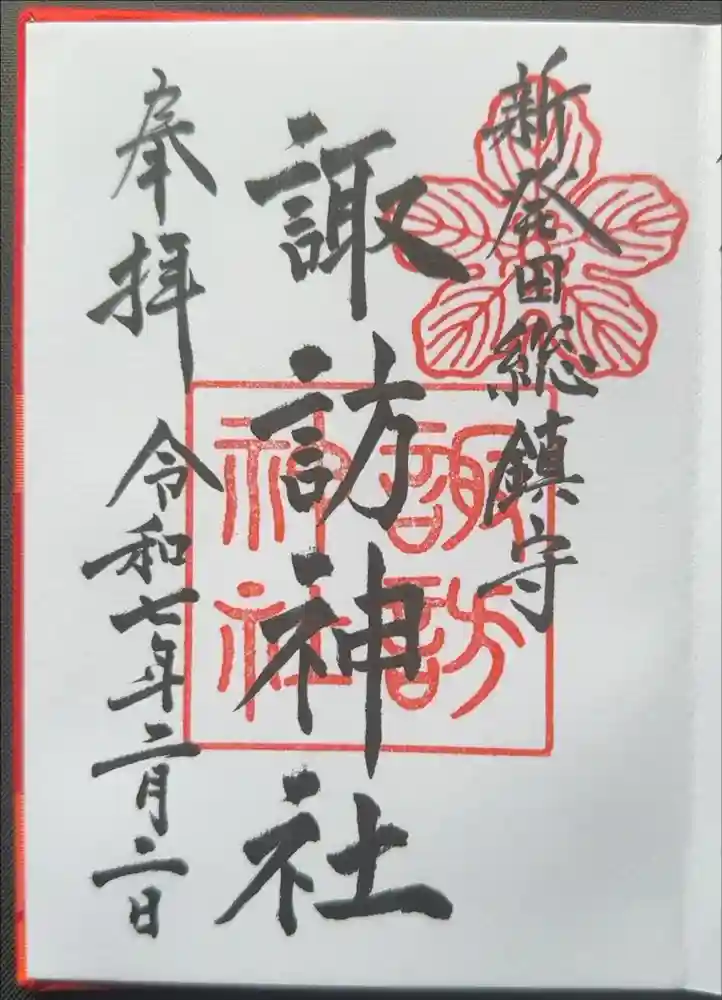 新発田総鎮守
諏訪神社
奉拝
令和七年二月二日
諏訪
神社